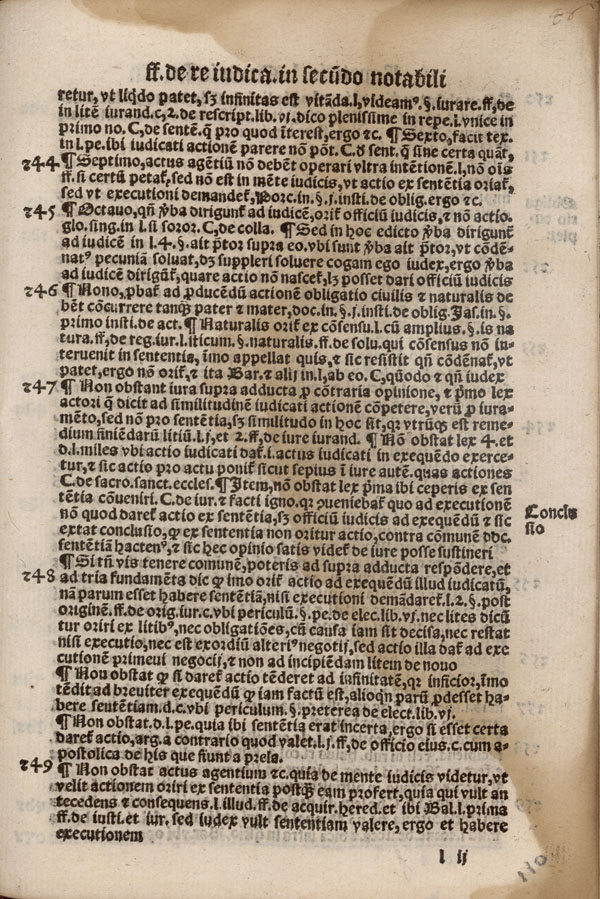 ff. de re iudica. in secūdo notabili
retur, vt liq̄do patet, sꝫ infinitas est vitāda. l, videamꝰ. §. iurare. ff, de
in litē iurand. c, 2. de rescript. lib. vj. dico plenissime in repe. l. vnice in
primo no. C, de sentē. ꝙ pro quod īterest, ergo ⁊c. ¶ Sexto, facit tex.
in l. pe. ibi iudicati actionē parere nō pōt. C. ð sent. ꝙ sine certa quāt,
244 ¶ Septimo, actus agētiū nō debēt operari vltra intētionē. l, nō oīs
ff. si certū petaꝶ, sed nō est in mēte iudicis, vt actio ex sentētia oriaꝶ,
sed vt executioni demandeꝶ, Porc. in. §. j. insti. de oblig. ergo ⁊c.
245 ¶ Octauo, qn̄ v̄ba dirigunꝶ ad iudicē, oriꝶ officiū iudicis, ⁊ nō actio.
glo. sing. in l. si soror. C, de colla. ¶ Sed in hoc edicto v̄ba dirigunꝶ
ad iudicē in l. 4. §. ait p̄tor supra eo. vbi sunt v̄ba ait p̄tor, vt cōdē-
natꝰ pecuniā soluat, dꝫ suppleri soluere cogam ego iudex, ergo v̄ba
ad iudicē dirigūꝶ, quare actio nō nasceꝶ, lꝫ posset dari officiū iudicis
246 ¶ Nono, ꝓbaꝶ ad ꝓducēdū actionē obligatio ciuilis ⁊ naturalis de
bēt cōcurrere tanꝙ̄ pater ⁊ mater, doc. in. §. j. insti. de oblig. Jas. in. §.
primo insti. de act. ¶ Naturalis oriꝶ ex cōsensu. l. cū amplius. §. is na
tura. ff, de reg. iur. l. sticum. §. naturalis. ff. de solu. qui cōsensus nō in-
teruenit in sententia, īmo appellat quis, ⁊ sic resistit qn̄ cōdēnaꝶ, vt
patet, ergo nō oriꝶ, ⁊ ita Bar. ⁊ alij in. l, ab eo. C, quōdo ⁊ qn̄ iudex
247 ¶ Non obstant iura supra adducta ꝓ cōtraria opinione, ⁊ p̄mo lex
actori ꝙ dicit ad similitudinē iudicati actionē cōpetere, verū ꝓ iura-
mēto, sed nō pro sentētia, sꝫ similitudo in hoc sit, qꝛ vtrūqꝫ est reme-
dium finiēdarū litiū. l. j, et 2. ff, de iure iurand. ¶ Nō obstat lex 4. et
d. l. miles vbi actio iudicati daꝶ. i. actus iudicati in exequēdo exerce-
tur, ⁊ sic actio pro actu poniꝶ sicut sepius ī iure autē. quas actiones
C. de sacro. sanct. eccles. ¶ Item, nō obstat lex p̄ma ibi ceperis ex sen
tētia cōueniri. C. de iur. ⁊ facti igno. qꝛ ꝯueniebaꝶ quo ad executionē
nō quod dareꝶ actio ex sentētia, sꝫ officiū iudicis ad exequēdū ⁊ sic
extat conclusio, ꝙ ex sententia non oritur actio, contra cōmunē doc.
sentētiā hactenꝰ, ⁊ sic hec opinio satis videꝶ de iure posse sustineri
Conclu
sio
¶ Si tn̄ vis tenere comunē, poteris ad supra adducta respōdere, et
248 ad tria fundamēta dic ꝙ imo oriꝶ actio ad exequēdū illud iudicatū,
nā parum esset habere sentētiā, nisi executioni demādareꝶ. l. 2. §. post
originē. ff. de orig. iur. c. vbi periculū. §. pe. de elec. lib. vj. nec lites dicū
tur oriri ex litibꝰ, nec obligatiōes, cū causa iam sit decisa, nec restat
nisi executio, nec est exordiū alteriꝰ negotij, sed actio illa daꝶ ad exe
cutionē primeui negocij, ⁊ non ad incipiēdam litem de nouo
¶ Non obstat ꝙ si dareꝶ actio tēderet ad infinitatē, qꝛ inficior, īmo
tēdit ad breuiter exequēdū ꝙ iam factū est, alioqn̄ parū ꝓdesset ha-
bere sentētiam. d. c. vbi periculum. §. preterea de elect. lib. vj.
¶ Non obstat. d. l. pe. quia ibi sentētia erat incerta, ergo si esset certa
dareꝶ actio, arg. a contrario quod valet. l. j. ff, de officio eius. c. cum a-
postolica de his que fiunt a prela.
249 ¶ Non obstat actus agentium ⁊c. quia de mente iudicis videtur, vt
velit actionem oriri ex sententia postꝙ̄ eam profert, quia qui vult an
tecedens ⁊ consequens. l. illud. ff. de acquir. hered. et ibi Bal. l. prima
ff. de iusti. et iur, sed iudex vult sententiam valere, ergo et habere
executionem
l ij
110